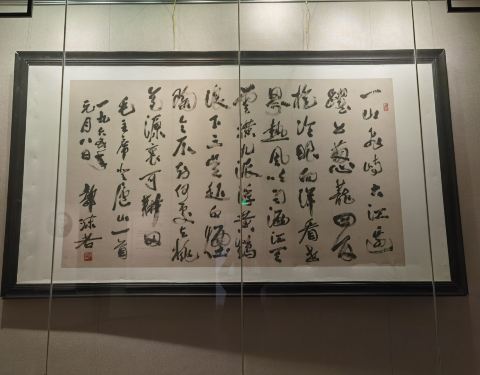 一山飛峙大江邊
躍上葱蘢四百
旋冷眼向洋看世
界熱風吹雨灑江天
雲横九派浮黄鶴
浪下三吴起白煙
陶令不知何處去桃
花源裏可耕田
毛主席登廬山一首
一九六年
元月八日
郭沫若